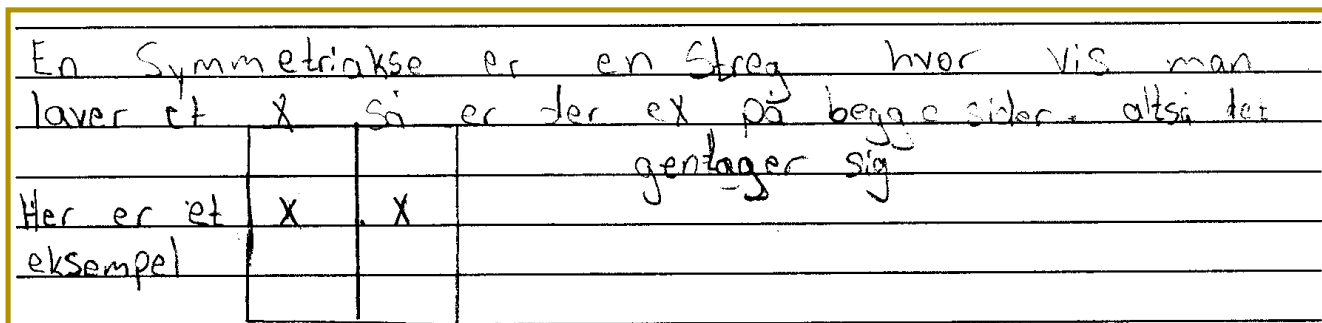 En Symmetriakse er en Streg hvor vis man
laver et X så er der ex på begge sider. altså det
gentager sig
Her er et X X
eksempel